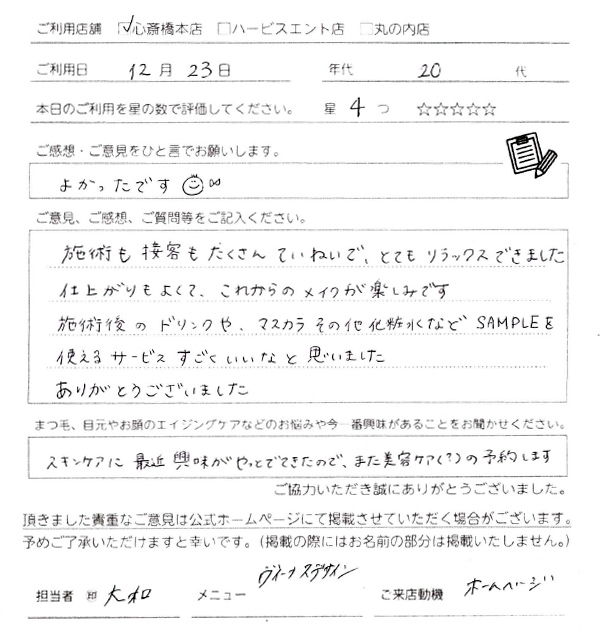 ご利用店舗 ☑心斎橋本店 □ハービスエント店 □丸の内店
ご利用日 12月 23日 年代 20 代
本日のご利用を星の数で評価してください。 星 4 つ ☆☆☆☆☆
ご感想・ご意見をひと言でお願いします。
よかったです
ご意見、ご感想、ご質問等をご記入ください。
施術も接客もたくさんていねいで、とてもリラックスできました
仕上がりもよくて、これからのメイクが楽しみです
施術後のドリンクや、マスカラその他化粧水などSAMPLEを
使えるサービスすごくいいなと思いました
ありがとうございました
まつ毛、目元やお顔のエイジングケアなどのお悩みや今一番興味があることをお聞かせください。
スキンケアに最近興味がやっとでてきたので、また美容ケア(?)の予約します
ご協力いただき誠にありがとうございました。
頂きました貴重なご意見は公式ホームページにて掲載させていただく場合がございます。
予めご了承いただけますと幸いです。(掲載の際にはお名前の部分は掲載いたしません。)
担当者 ㊞ 大和 メニュー ヴィーナスデザイン ご来店動機 ホームページ